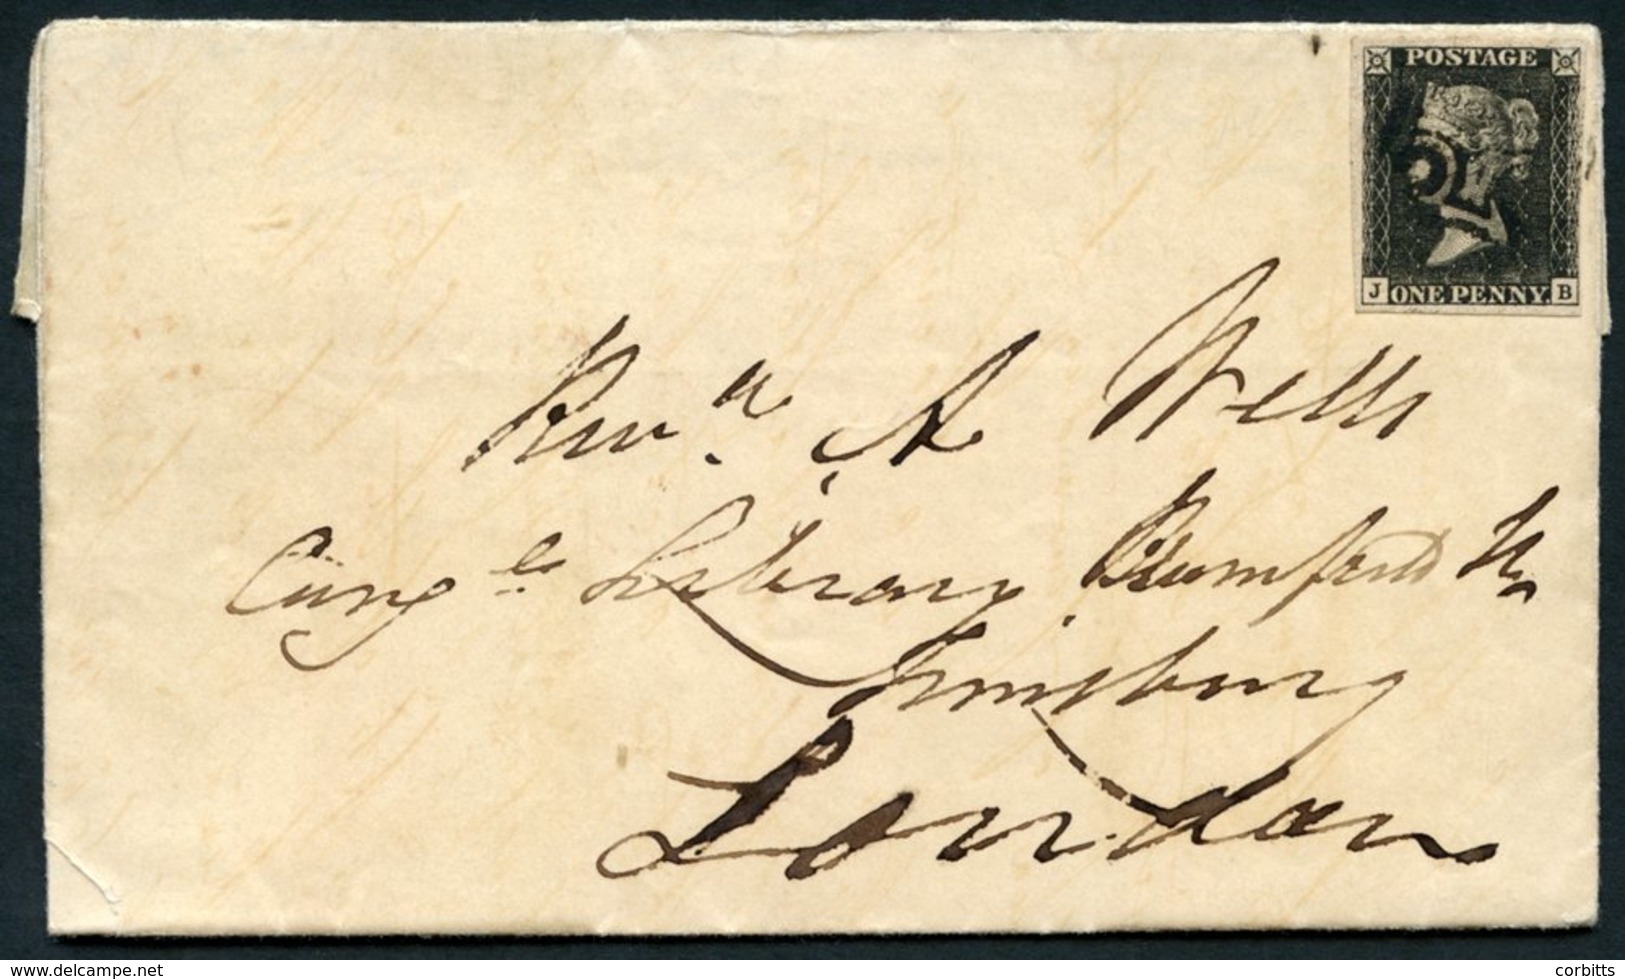 POSTAGE
J ONE PENNY. B
Revd. A Wells
Congl. Library Blomfield St
Finsbury
London
www.delcampe.net
corbitts